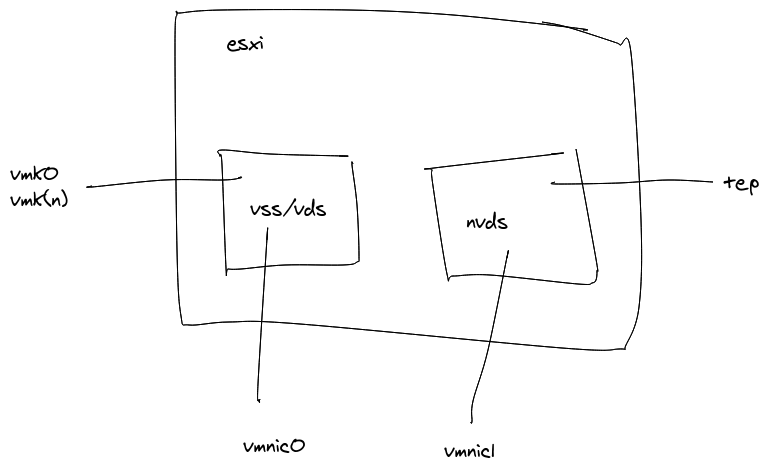 esxi
vmk0
vmk(n)
vss/vds
nvds
tep
vmnic0
vmnic1